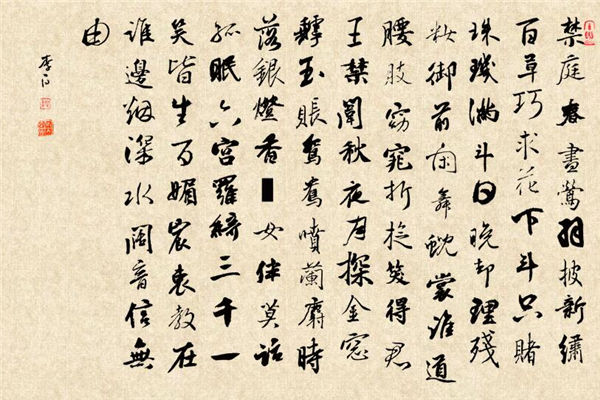 禁庭春晝鶯羽披新繡
百草巧求花下斗只賭
珠璣滿斗日晚却理殘
妝御前閑舞霓裳誰道
腰肢窈窕折旋笑得君
王禁闈秋夜月探金窗
罅玉賬鴛鴦噴蘭麝時
落銀燈香女伴莫話
孤眠六宮羅綺三千一
笑皆生百媚宸衷教在
誰邊烟深水闊音信無
由
李白